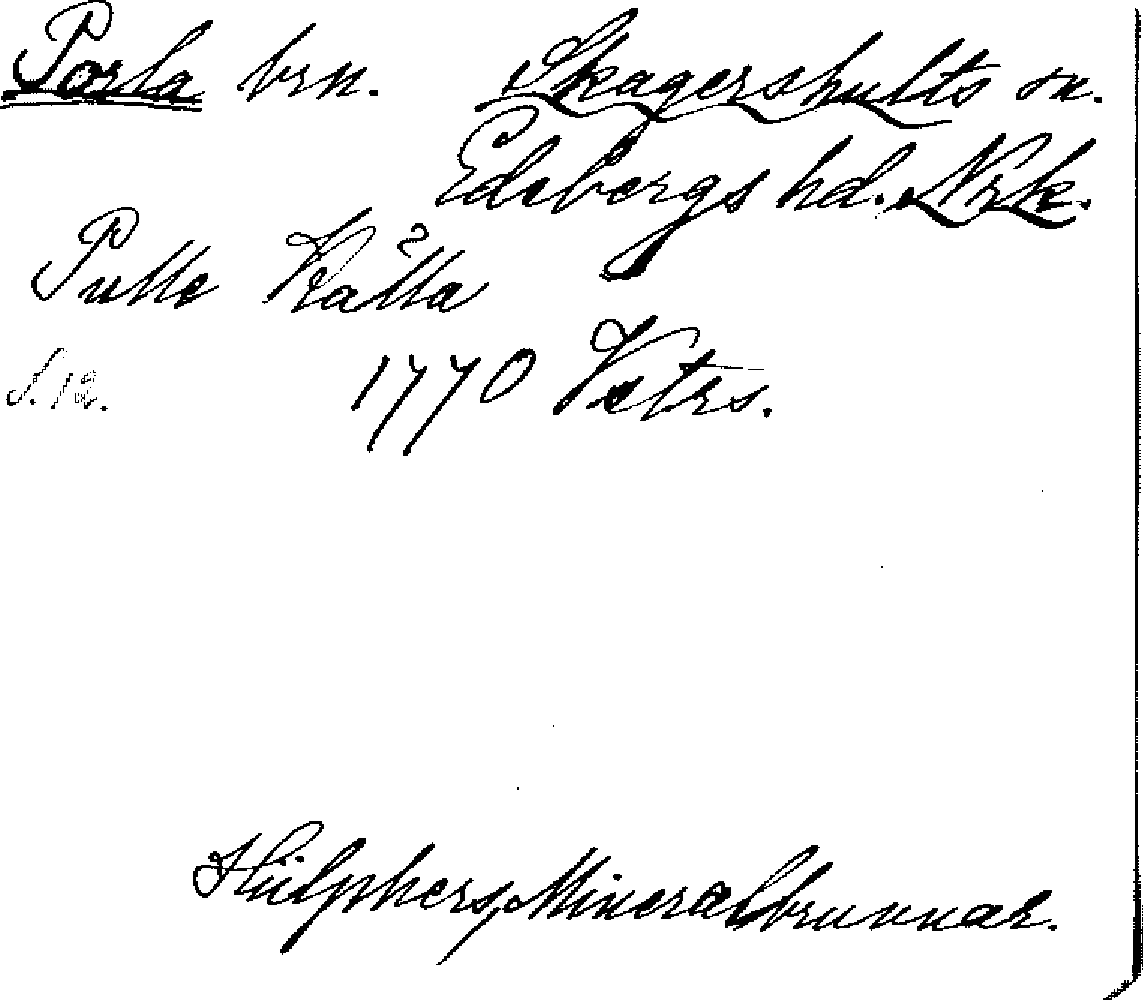 Porla brn. Skagershults sn.
Edsbergs hd. Nrk.
Putte Källa
S. 12. 1770 Vetrs.
Hülphers, Mineralbrunnar.